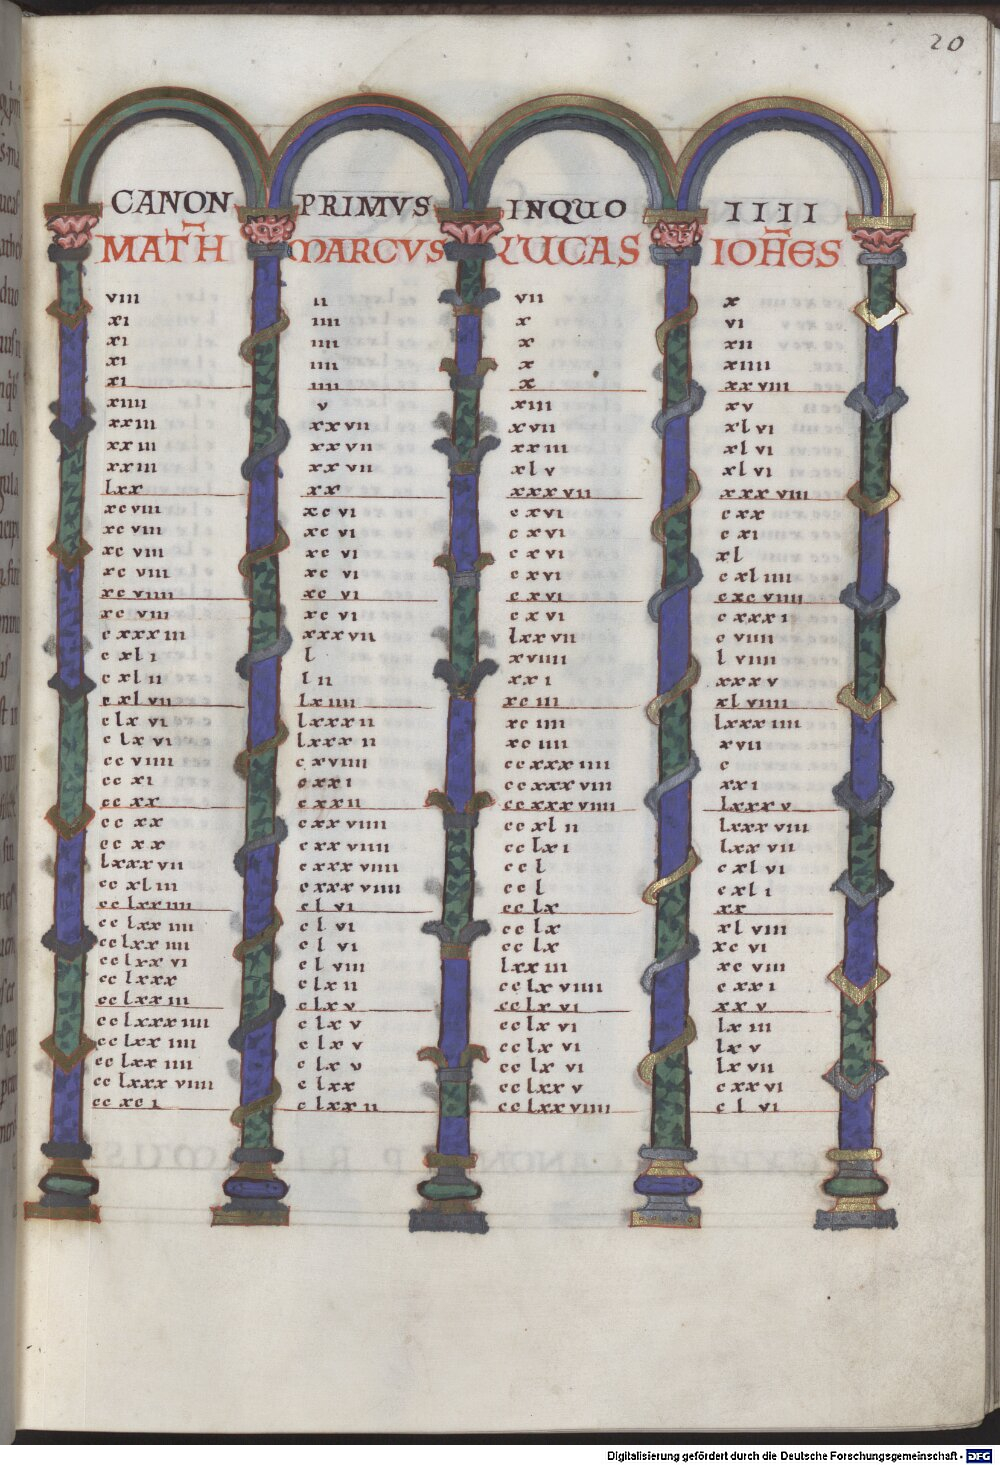 20
CANON PRIMVS INQUO IIII
MATH MARCVS LUCAS IOHES
viii ii vii x
xi iiii x vi
xi iiii x xii
xi iiii x xiiii
xi iiii x xxviii
xiiii v xiii xv
xxiii xxvii xvii xlvi
xxiii xxvii xxiii xlvi
xxiii xxvii xlv xlvi
lxx xx xxxvii xxxviii
xcviii xcvi cxvi cxx
xcviii xcvi cxvi cxi
xcviii xcvi cxvi xl
xcviii xcvi cxvi cxliiii
xcviiii xcvi cxvi cxcviiii
xcviii xcvi cxvi cxxxi
cxxxiii xxxvii lxxvii cviiii
cxli l xviiii lviiii
cxlii lii xxi xxxv
cxlvii lxiiii xciii xlviiii
clxvi lxxxii xciiii lxxxiiii
clxvi lxxxii xciiii xvii
ccviiii cxviiii ccxxxiiii c
ccxi cxxi ccxxxviii xxi
ccxx cxxii ccxxxviiii lxxxv
ccxx cxxviiii ccxlii lxxxviii
ccxx cxxviiii cclxi lxxvii
lxxxvii cxxxviiii ccl cxlvi
ccxliii cxxxviiii ccl cxli
cclxxiiii clvi cclx xx
cclxxiiii clvi cclx xlviii
cclxxiiii clvi cclx xcvi
cclxxvi clviii lxxiii xcviii
cclxxx clxii cclxviiii cxxi
cclxxiii clxv cclxvi xxv
cclxxxiiii clxv cclxvi lxiii
cclxxiiii clxv cclxvi lxv
cclxxiiii clxv cclxvi lxvii
cclxxxviiii clxx cclxxv cxxvi
ccxci clxxii cclxxviiii clvi
Digitalisierung gefördert durch die Deutsche Forschungsgemeinschaft - DFG